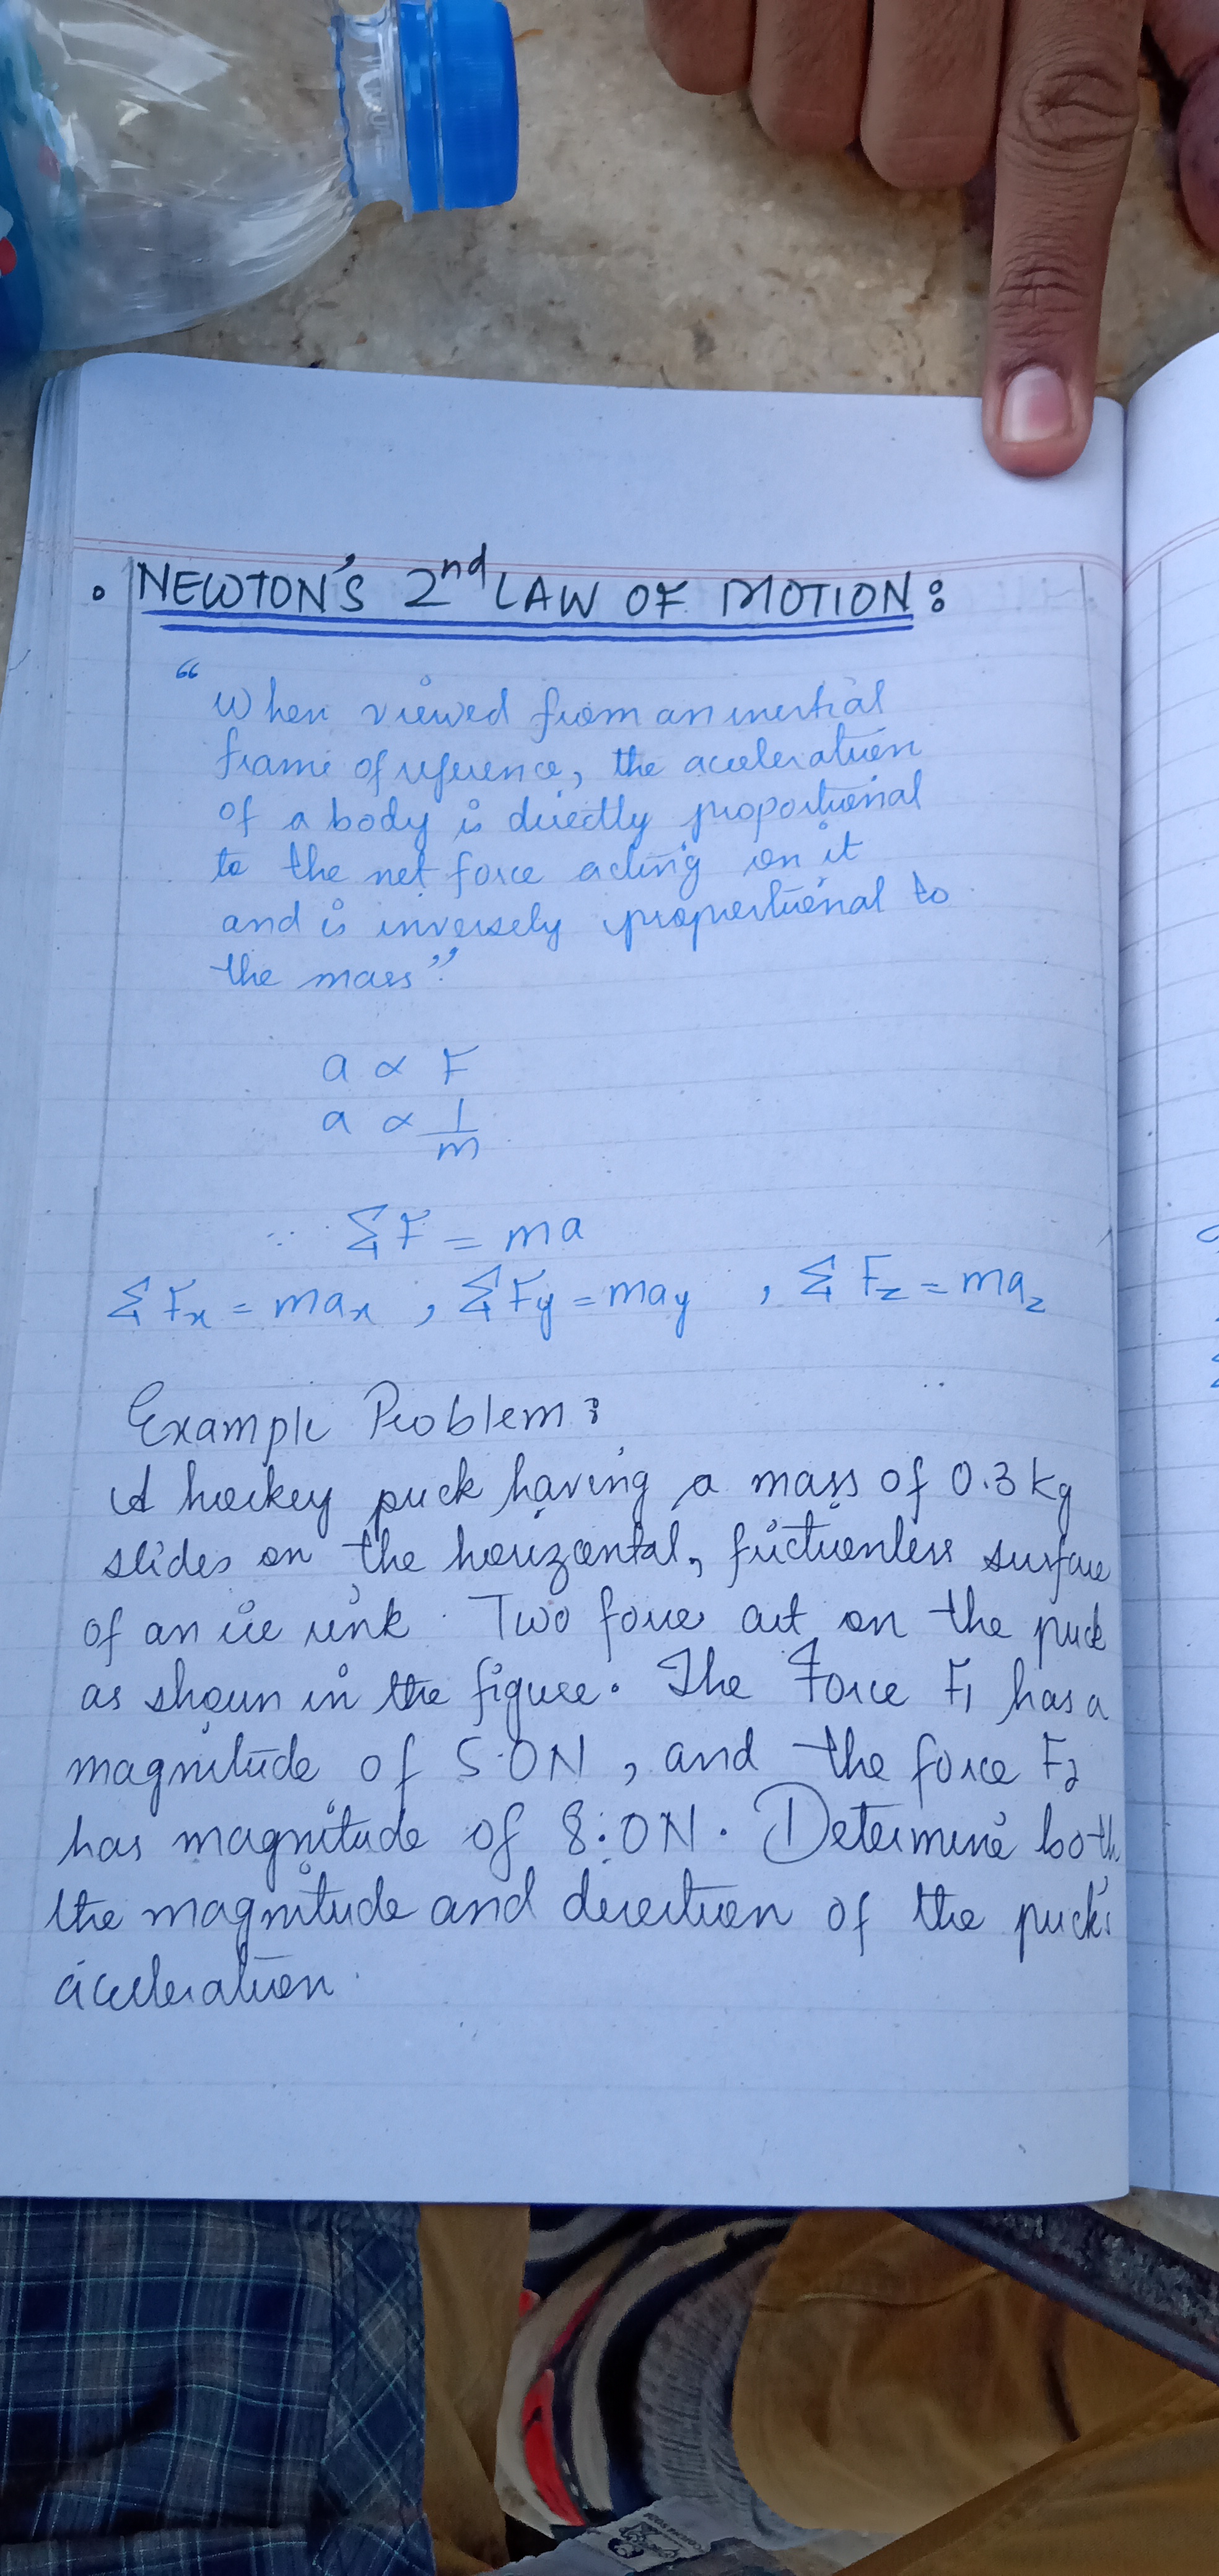 • NEWTON'S 2nd LAW OF MOTION:
"When viewed from an inertial
frame of reference, the acceleration
of a body is directly proportional
to the net force acting on it
and is inversely proportional to
the mass".
a ∝ F
a ∝ 1/m
∵ ΣF = ma
ΣFx = max , ΣFy = may , ΣFz = maz
Example Problem:
A hockey puck having a mass of 0.3 kg
slides on the horizontal, frictionless surface
of an ice rink. Two force act on the puck
as shown in the figure. The Force F1 has a
magnitude of 5.0N, and the force F2
has magnitude of 8.0N. Determine both
the magnitude and direction of the puck's
acceleration.